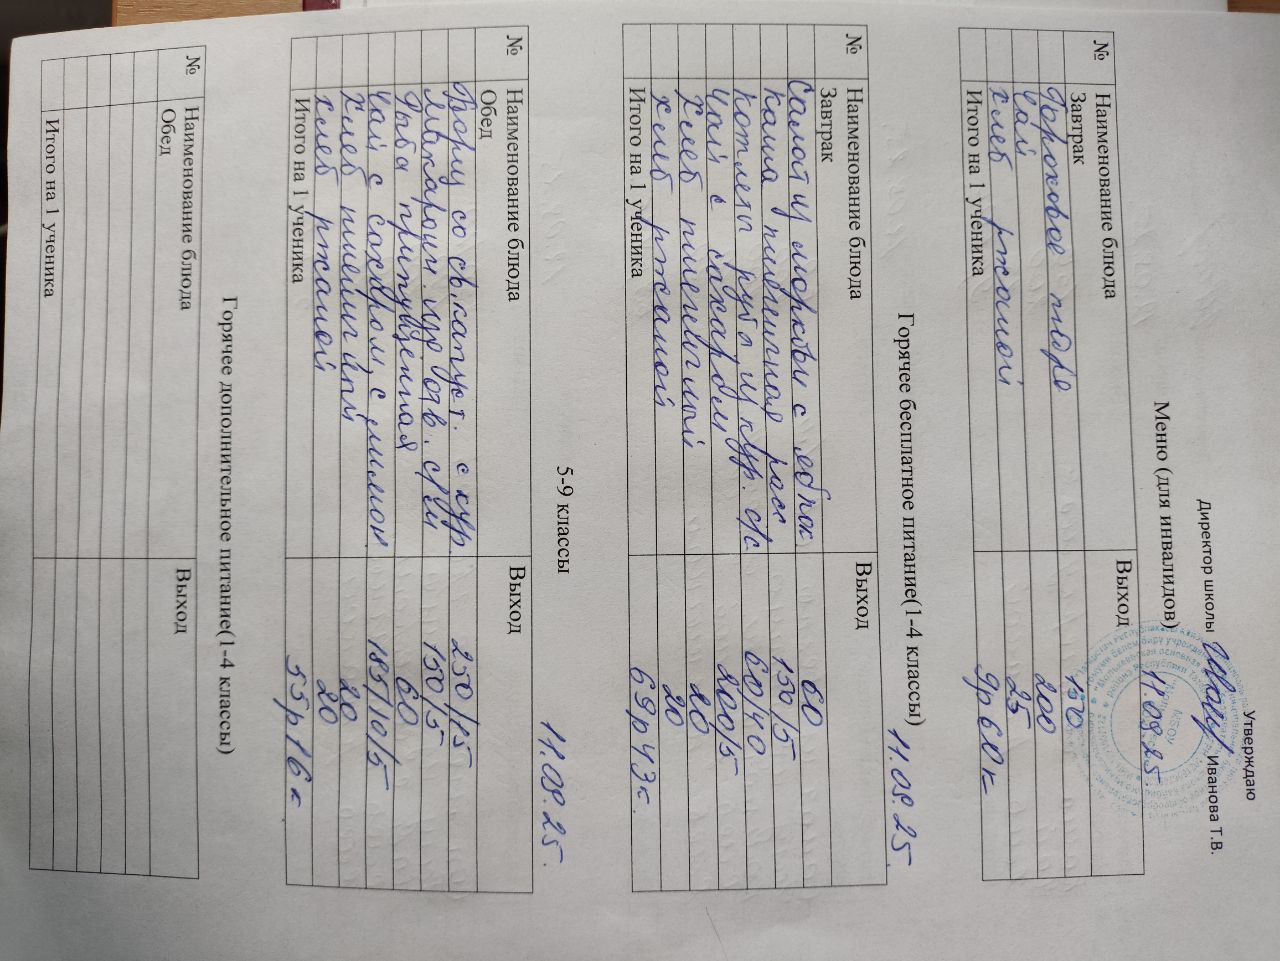 Утверждаю
Директор школы Иванова Т.В.
Меню (для инвалидов) 11.09.25.
№ Наименование блюда Выход
Завтрак
Гороховое пюре 150
Чай 200
Хлеб ржаной 25
Итого на 1 ученика 9р 60к
Горячее бесплатное питание(1-4 классы) 11.09.25.
№ Наименование блюда Выход
Завтрак
Салат из моркови с яблок 60
Каша пшеничная расс 150/5
Котлеты рубл из кур. с/с 60/40
Чай с сахаром 200/5
Хлеб пшеничный 20
Хлеб ржаной 20
Итого на 1 ученика 69р 43к.
5-9 классы 11.09.25.
№ Наименование блюда Выход
Обед
Борщ со св. капуст. с кур. 250/15
Макарон. изд. отв. с/м 150/5
Рыба припущенная 60
Чай с сахаром, с лимон 185/10/5
Хлеб пшеничный 20
Хлеб ржаной 20
Итого на 1 ученика 55р 16к.
Горячее дополнительное питание(1-4 классы)
№ Наименование блюда Выход
Обед
Итого на 1 ученика